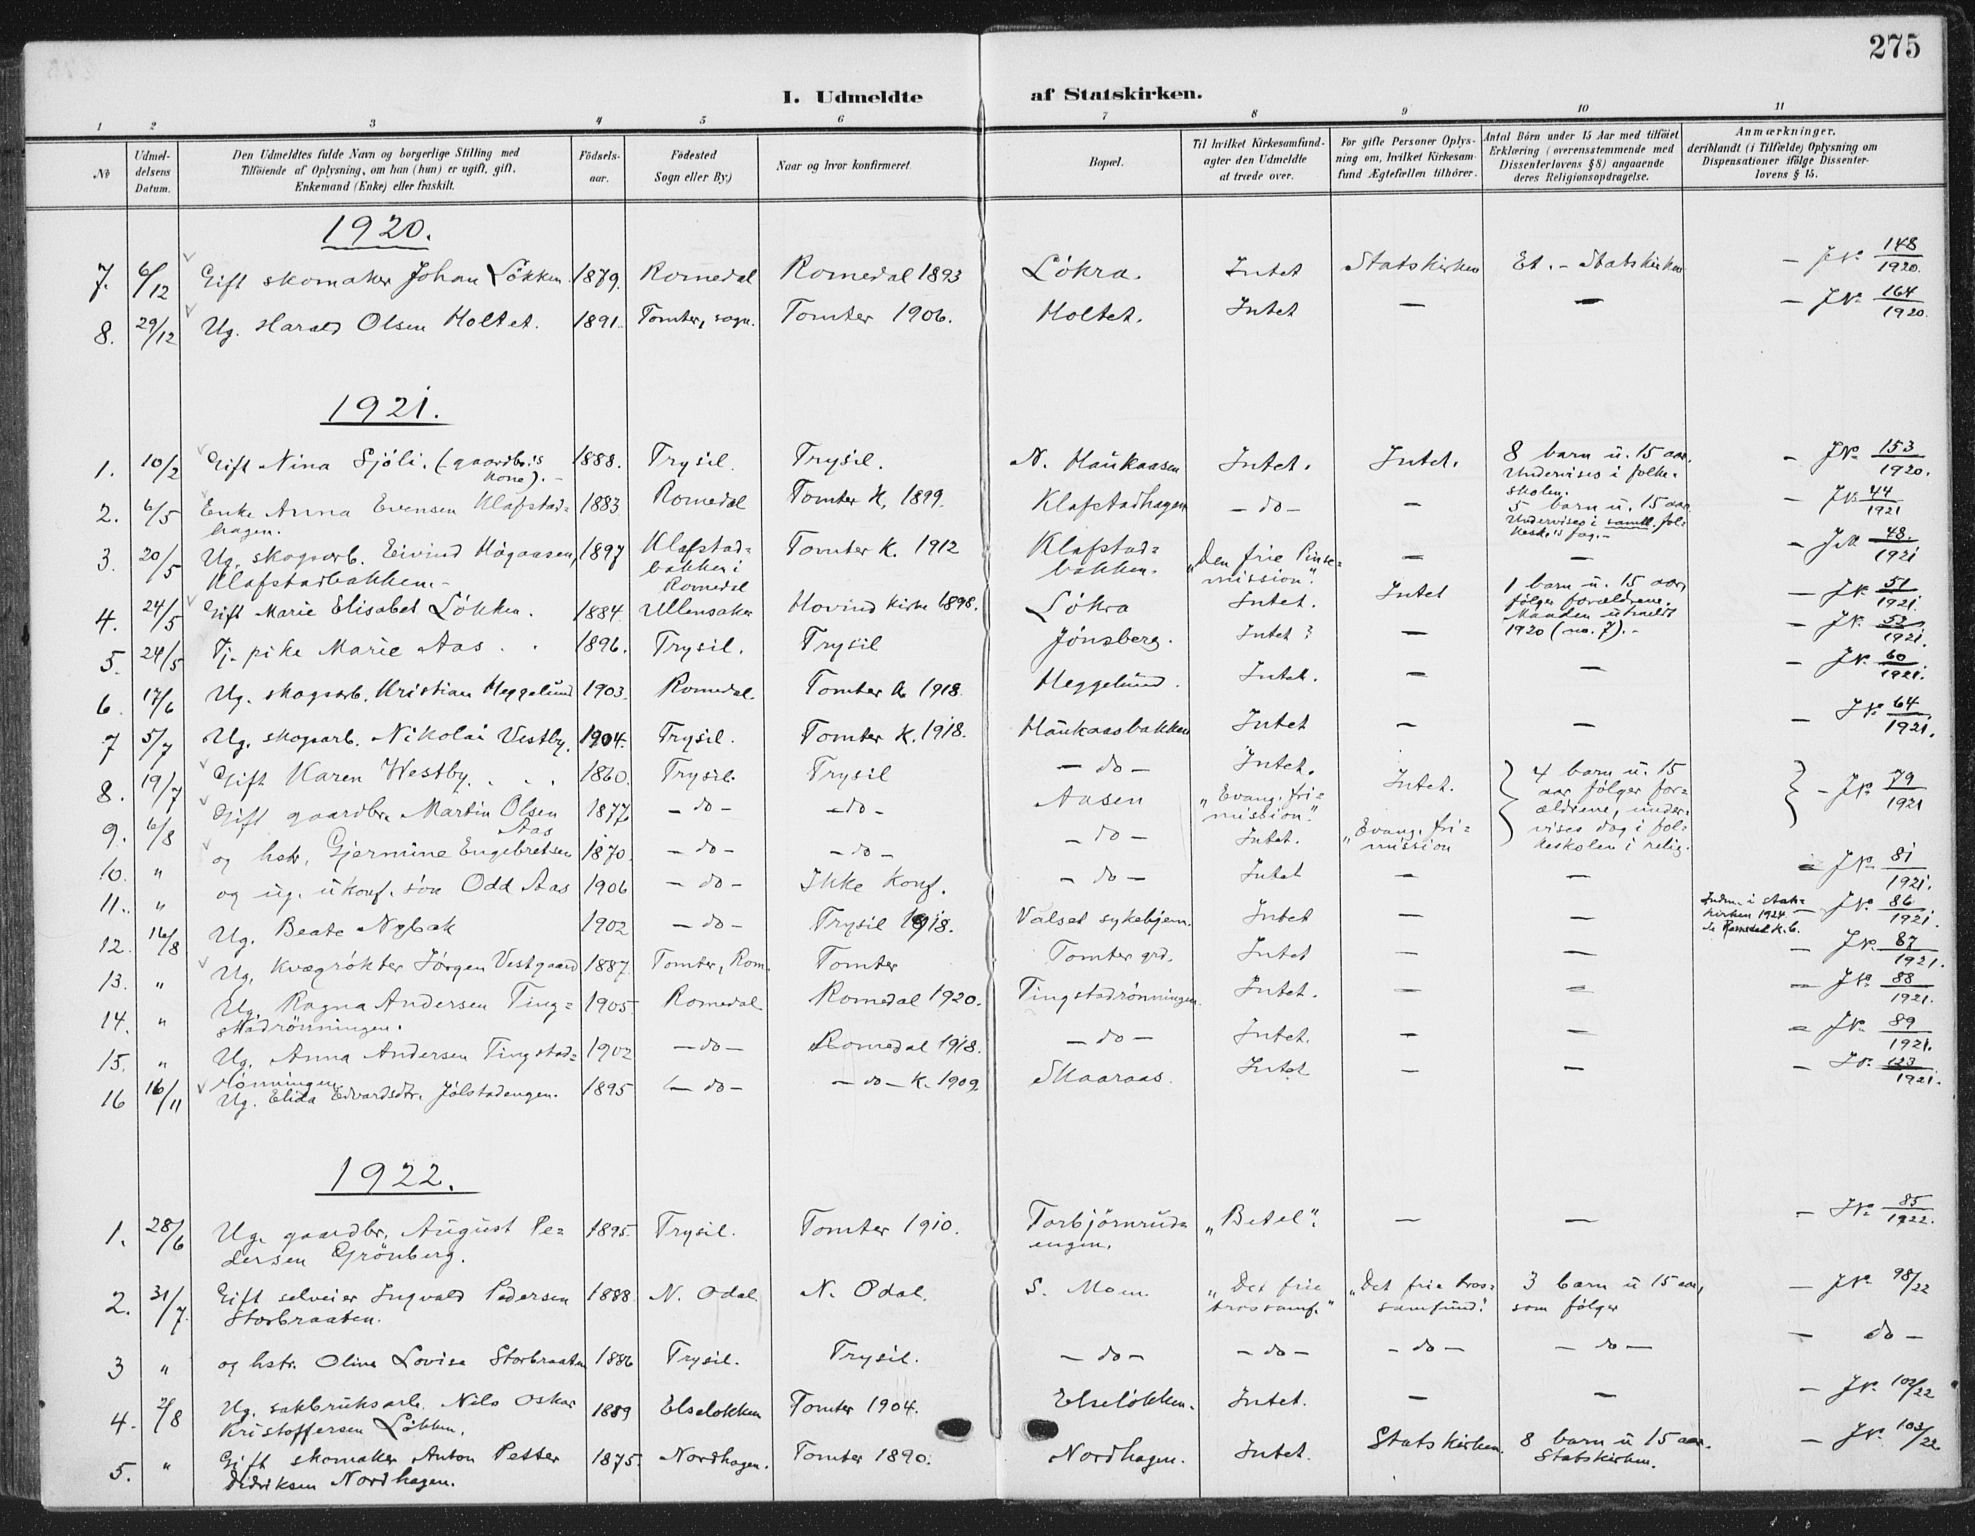 275
I. Udmeldte af Statskirken.
1 2 3 4 5 6 7 8 9 10 11
No
Udmel-
delsens
Datum.
Den Udmeldtes fulde Navn og borgerlige Stilling med
Tilföiende af Oplysning, om han (hun) er ugift, gift,
Enkemand (Enke) eller fraskilt.
Födsels-
aar.
Födested
Sogn eller By.)
Naar og hvor konfirmeret.
Bopæl.
Til hvilket Kirkesamfund-
agter den Udmeldte
at træde over.
For gifte Personer Oplys-
ning om, hvilket Kirkesam-
fund Ægtefællen tilhörer.
Antal Börn under 15 Aar med tilföiet
Erklæring (overensstemmende med
Dissenterlovens § 8) angaaende
deres Religionsopdragelse.
Anmærkninger,
deriblandt (i Tilfælde) Oplysning om
Dispensationer ifölge Dissenter-
lovens § 15.
1920.
7. 6/12 Gift skomaker Johan Løkken 1879. Romedal Romedal 1893 Løkra. Intet Statskirken Et. - Statskirken - JNo 148/1920.
8. 29/12 Ug. Harald Olsen Holtet. 1891. Tomter, sogn. Tomter 1906. Holtet. Intet — — - JNo 164/1920.
1921.
1. 10/2 Gift Nina Sjøli. (gaardbr.is 1888. Trysil. Trysil. N. Haukaasen Intet. Intet. 8 barn u. 15 aar. - JNo 153/1920.
kone). - Undervises i folke-
skolen.
2. 6/5 Enke Anna Evensen Klafstad= 1883 Romedal Tomter K. 1899. Klafstadhagen - do - — 5 barn u. 15 aar. - JNo 44/1921
hagen. Undervises i samtl. fol-
3. 20/5 Ug. skogsarb. Eivind Høgaasen, 1897 Klafstad= Tomter K. 1912 Klafstad= „Den frie Pinse= — — - JNo 48./1921
Klafstadbakken. - bakken i bakken. mission".
Romedal
4. 24/5 Gift Marie Elisabet Løkken. 1884. Ullensaker Hovind kirke 1898. Løkra Intet. Intet 1 barn u. 15 aar, - JNo 51/1921.
følger forældrene.
Manden utmeldt
1920 (no. 7). -
5. 24/5 Tj. pike Marie Aas 1896. Trysil. Trysil Jønsberg. Intet? — - JNo 53/1921.
6. 17/6 Ug. skogsarb. Kristian Heggelund 1903. Romedal. Tomter k 1918. Heggelund. Intet. — — - JNo 60/1921.
7 5/7 Ug. skogsarb. Nikolai Vestby. 1904. Trysil. Tomter K. 1918. Haukaasbakken Intet — — - JNo 64/1921.
8. 19/7 Gift Karen Westby. 1860. Trysil. Trysil - do - Intet. Intet. 4 barn u. 15 - JNo 79/1921
9. 6/8 Gift gaardbr. Martin Olsen 1877. - do - - do - Aasen „Evang. fri= aar følger for=
Aas mission". ældrene, under=
10. " og hstr. Gjermine Engebretsen 1870. - do - - do - - do - Intet. „Evang. fri= vises dog i fol=
mission keskolen i relig.
11. " og ug. ukonf. søn Odd Aas 1906 - do - Ikke konf. - do - Intet — — JNo 81/1921.
12. 16/8 Ug. Beate Nybak 1902 - do - Trysil 1918. Valset sykehjem. Intet — — Indm. i stats=
kirken 1924 - JNo 86/1921.
13. " Ug. Kvægrøkter Jørgen Vestgaard 1887. Tomter, Rom. Tomter Tomter grd. Intet — — - JNo 87/1921.
14. " Ug. Ragna Andersen Ting= 1905 Romedal Romedal 1920. Tingstadrønningen. Intet. — — - JNo 88/1921.
stadrönningen.
15. " Ug. Anna Andersen Tingstad= 1902 - do - Romedal 1918. - do - Intet. — — - JNo 89/1921.
rönningen
16 16/11 Ug. Elida Edvardsdtr. Jølstadengen. 1895 - do - - do - K. 1909 Skaaraas. Intet — — - JNo 123/1921.
1922.
1. 28/6 Ug. gaardbr. August Pe= 1895. Trysil. Tomter 1910. Torbjørnruds= „Betel". — — - JNo 85/1922.
dersen Grönberg. engen.
2. 31/7 Gift selveier Ingvald Pedersen 1888. N. Odal. N. Odal. S. Moen. „Det frie „Det frie tros= 3 barn u 15 aar, - JNo 98/22
Storbraaten. trossamf." samfund". som følger
3 " og hstr. Oline Lovise Storbraaten 1886 Trysil. Trysil. - do - - do - - do - - do - - do -
4. 2/8 Ug. sakbruksarb. Nils Oskar 1889 Elseløkken Tomter 1904. Elseløkken. Intet. — — - JNo 102/22
Kristoffersen Løkken.
5. " Gift skomaker Anton Petter 1875. Nordhagen. Tomter 1890. Nordhagen. Intet. Statskirken. 8 barn u 15 aar. - JNo 103/22.
Didriksen Nordhagen. Statskirken.